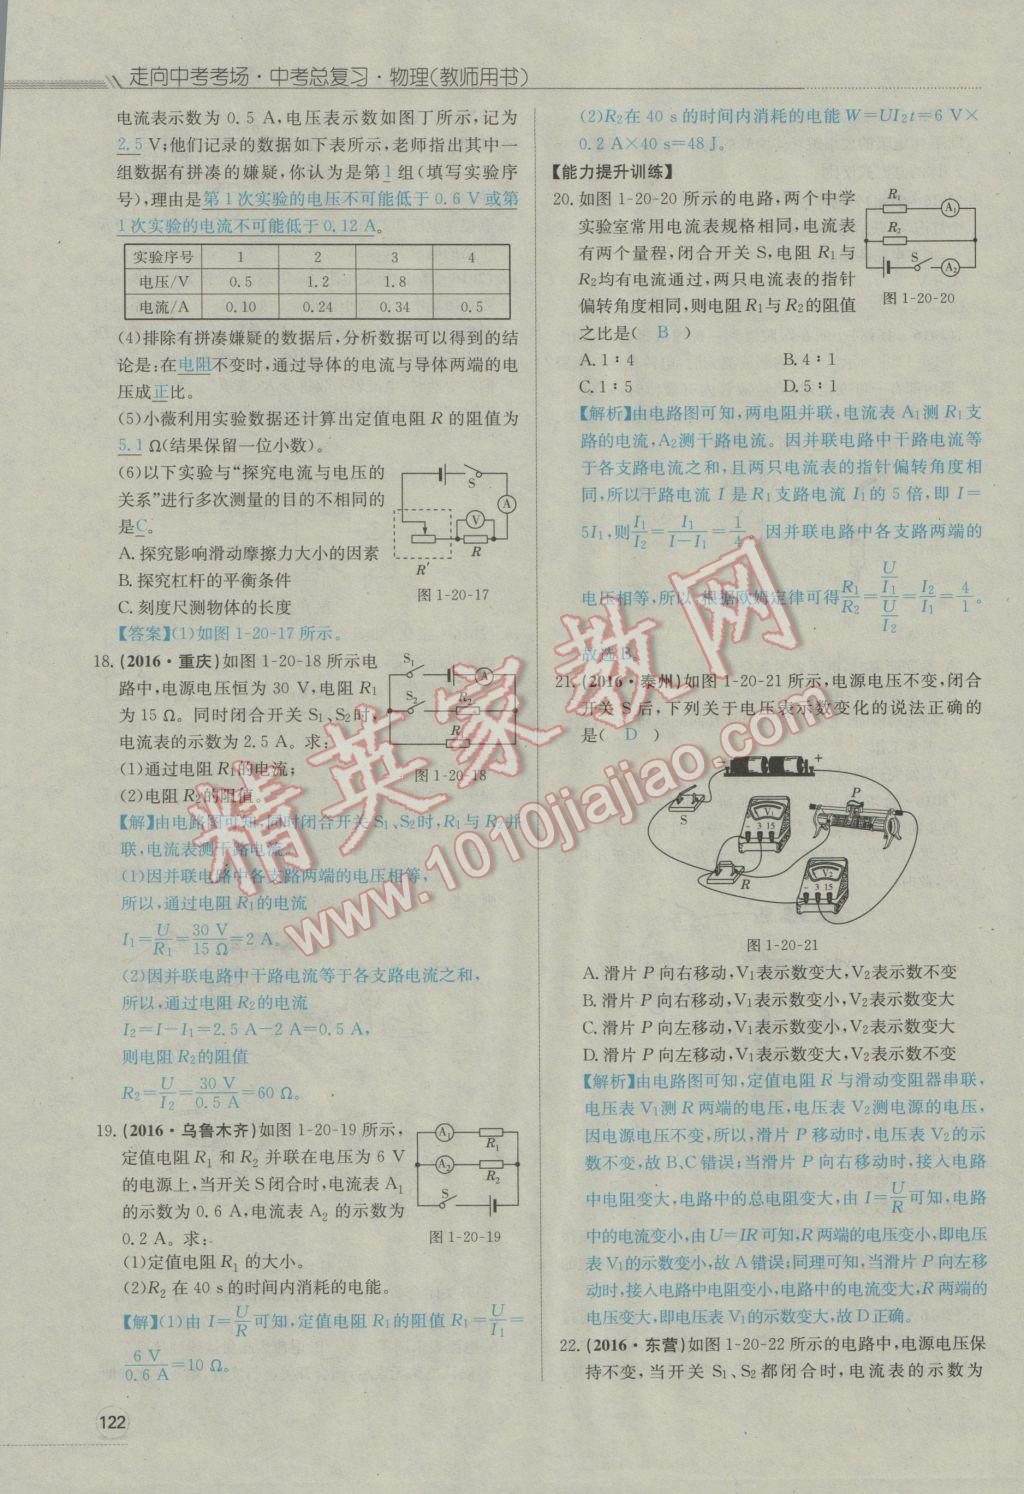 走向中考考场·中考总复习·物理(教师用书)
电流表示数为 0.5 A,电压表示数如图丁所示,记为
2.5 V;他们记录的数据如下表所示,老师指出其中一
组数据有拼凑的嫌疑,你认为是第 1 组(填写实验序
号),理由是第 1 次实验的电压不可能低于 0.6 V 或第
1 次实验的电流不可能低于 0.12 A。
实验序号 1 2 3 4
电压/V 0.5 1.2 1.8
电流/A 0.10 0.24 0.34 0.5
(4)排除有拼凑嫌疑的数据后,分析数据可以得到的结
论是:在电阻不变时,通过导体的电流与导体两端的电
压成正比。
(5)小薇利用实验数据还计算出定值电阻 R 的阻值为
5.1 Ω(结果保留一位小数)。
(6)以下实验与“探究电流与电压的
关系”进行多次测量的目的不相同的
是C。
A. 探究影响滑动摩擦力大小的因素
B. 探究杠杆的平衡条件
C. 刻度尺测物体的长度
S
A
V
R
R′
图 1-20-17
【答案】(1)如图 1-20-17 所示。
18. (2016·重庆)如图 1-20-18 所示电
路中,电源电压恒为 30 V,电阻 R₁
为 15 Ω。同时闭合开关 S₁、S₂时,
电流表的示数为 2.5 A。求:
(1)通过电阻 R₁的电流;
(2)电阻 R₂的阻值。
S₁
A
S₂
R₂
R₁
图 1-20-18
【解】由电路图可知,同时闭合开关 S₁、S₂时,R₁与 R₂并
联,电流表测干路电流。
(1)因并联电路中各支路两端的电压相等,
所以,通过电阻 R₁的电流
I₁=U/R₁=30 V/15 Ω=2 A。
(2)因并联电路中干路电流等于各支路电流之和,
所以,通过电阻 R₂的电流
I₂=I-I₁=2.5 A-2 A=0.5 A,
则电阻 R₂的阻值
R₂=U/I₂=30 V/0.5 A=60 Ω。
19. (2016·乌鲁木齐)如图 1-20-19 所示,
定值电阻 R₁ 和 R₂ 并联在电压为 6 V
的电源上,当开关 S闭合时,电流表 A₁
的示数为 0.6 A,电流表 A₂ 的示数为
0.2 A。求:
(1)定值电阻 R₁ 的大小。
(2)R₂ 在 40 s 的时间内消耗的电能。
A₁
R₁
A₂
R₂
S
图 1-20-19
【解】(1)由 I=U/R可知,定值电阻 R₁的阻值 R₁=U/I₁=
6 V/0.6 A=10 Ω。
122
(2)R₂在 40 s 的时间内消耗的电能 W=UI₂t=6 V×
0.2 A×40 s=48 J。
【能力提升训练】
20. 如图 1-20-20 所示的电路,两个中学
实验室常用电流表规格相同,电流表
有两个量程,闭合开关 S,电阻 R₁与
R₂均有电流通过,两只电流表的指针
偏转角度相同,则电阻 R₁与 R₂的阻值
之比是( B )
R₁
A₁
R₂
S
A₂
图 1-20-20
A. 1∶4 B. 4∶1
C. 1∶5 D. 5∶1
【解析】由电路图可知,两电阻并联,电流表 A₁测 R₁支
路的电流,A₂测干路电流。因并联电路中干路电流等
于各支路电流之和,且两只电流表的指针偏转角度相
同,所以干路电流 I 是 R₁支路电流 I₁的 5 倍,即 I=
5I₁,则I₁/I₂=I₁/(I-I₁)=1/4。因并联电路中各支路两端的
电压相等,所以,根据欧姆定律可得R₁/R₂=(U/I₁)/(U/I₂)=I₂/I₁=4/1。
故选 B。
21. (2016·泰州)如图 1-20-21 所示,电源电压不变,闭合
开关 S 后,下列关于电压表示数变化的说法正确的
是( D )
－ ＋
S
V₁
－ 3 15
P
R
V₂
－ 3 15
图 1-20-21
A. 滑片 P 向右移动,V₁表示数变大,V₂表示数不变
B. 滑片 P 向右移动,V₁表示数变小,V₂表示数变大
C. 滑片 P 向左移动,V₁表示数变小,V₂表示数变大
D. 滑片 P 向左移动,V₁表示数变大,V₂表示数不变
【解析】由电路图可知,定值电阻 R 与滑动变阻器串联,
电压表 V₁测 R 两端的电压,电压表 V₂测电源的电压,
因电源电压不变,所以,滑片 P 移动时,电压表 V₂的示
数不变,故 B、C 错误;当滑片 P 向右移动时,接入电路
中电阻变大,电路中的总电阻变大,由 I=U/R可知,电路
中的电流变小,由 U=IR 可知,R 两端的电压变小,即电压
表 V₁的示数变小,故 A 错误;同理可知,当滑片 P 向左移
动时,接入电路中电阻变小,电路中的电流变大,R 两端的
电压变大,即电压表 V₁的示数变大,故 D 正确。
22. (2016·东营)如图 1-20-22 所示的电路中,电源电压保
持不变,当开关 S₁、S₂ 都闭合时,电流表的示数为
精英家教网
www.1010jiajiao.com